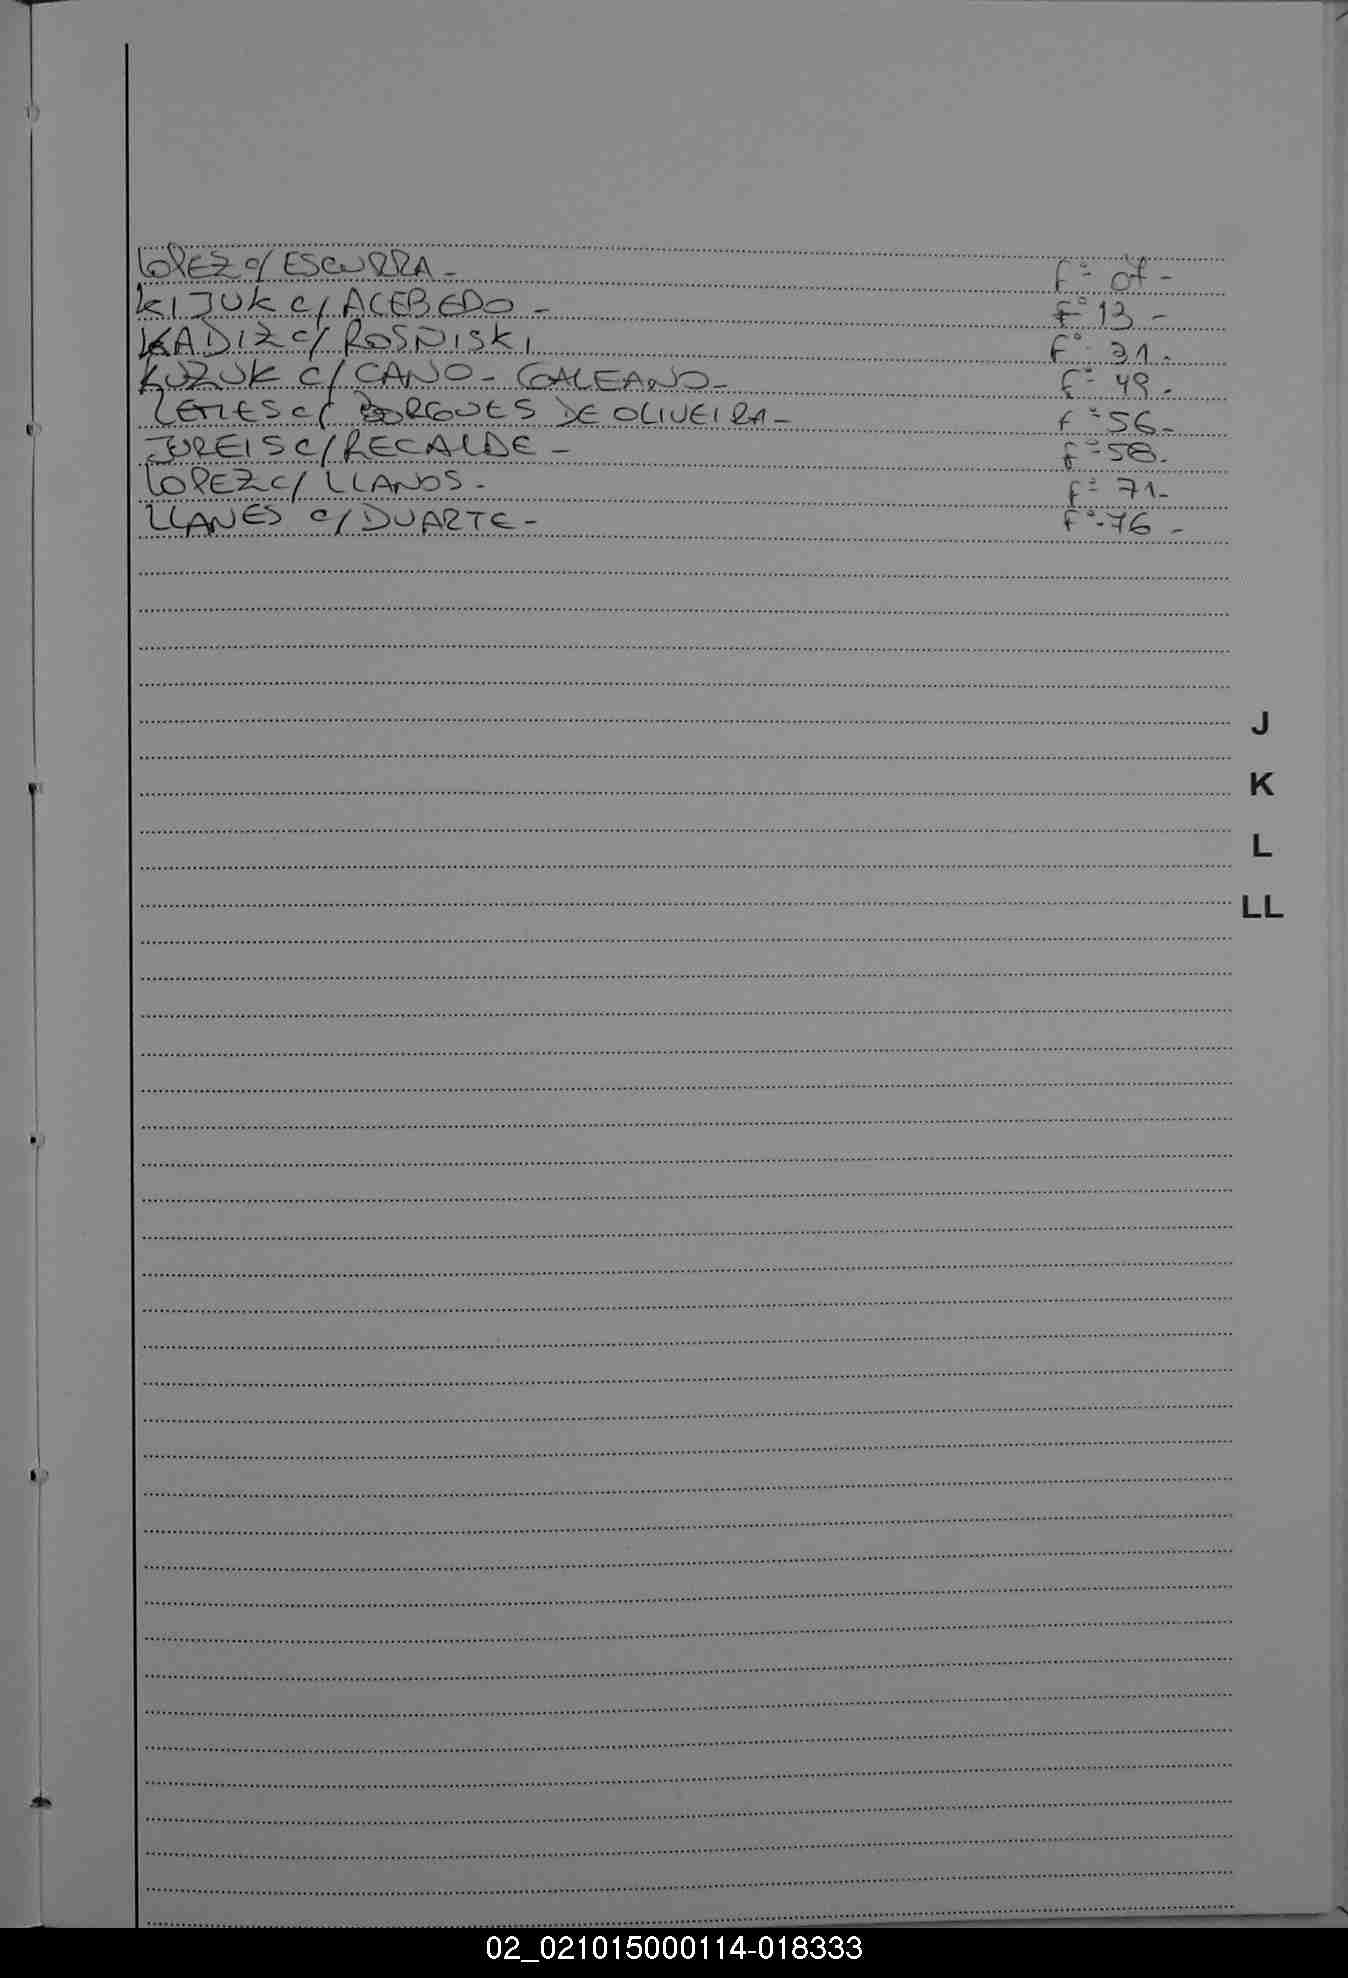 LOPEZ c/ ESCURRA - f° 07 -
KIJUK c/ ACEBEDO - f° 13 -
KADIZ c/ ROSNISKI f° 31.
KUZUK c/ CANO - GALEANO - f° 49 -
c/ BORGUES DE OLIVEIRA - f° 56 -
JUREIS c/ RECALDE - f° 58.
LOPEZ c/ LLANOS - f° 71 -
LLANES c/ DUARTE - f° 76 -
J
K
L
LL
02_021015000114-018333